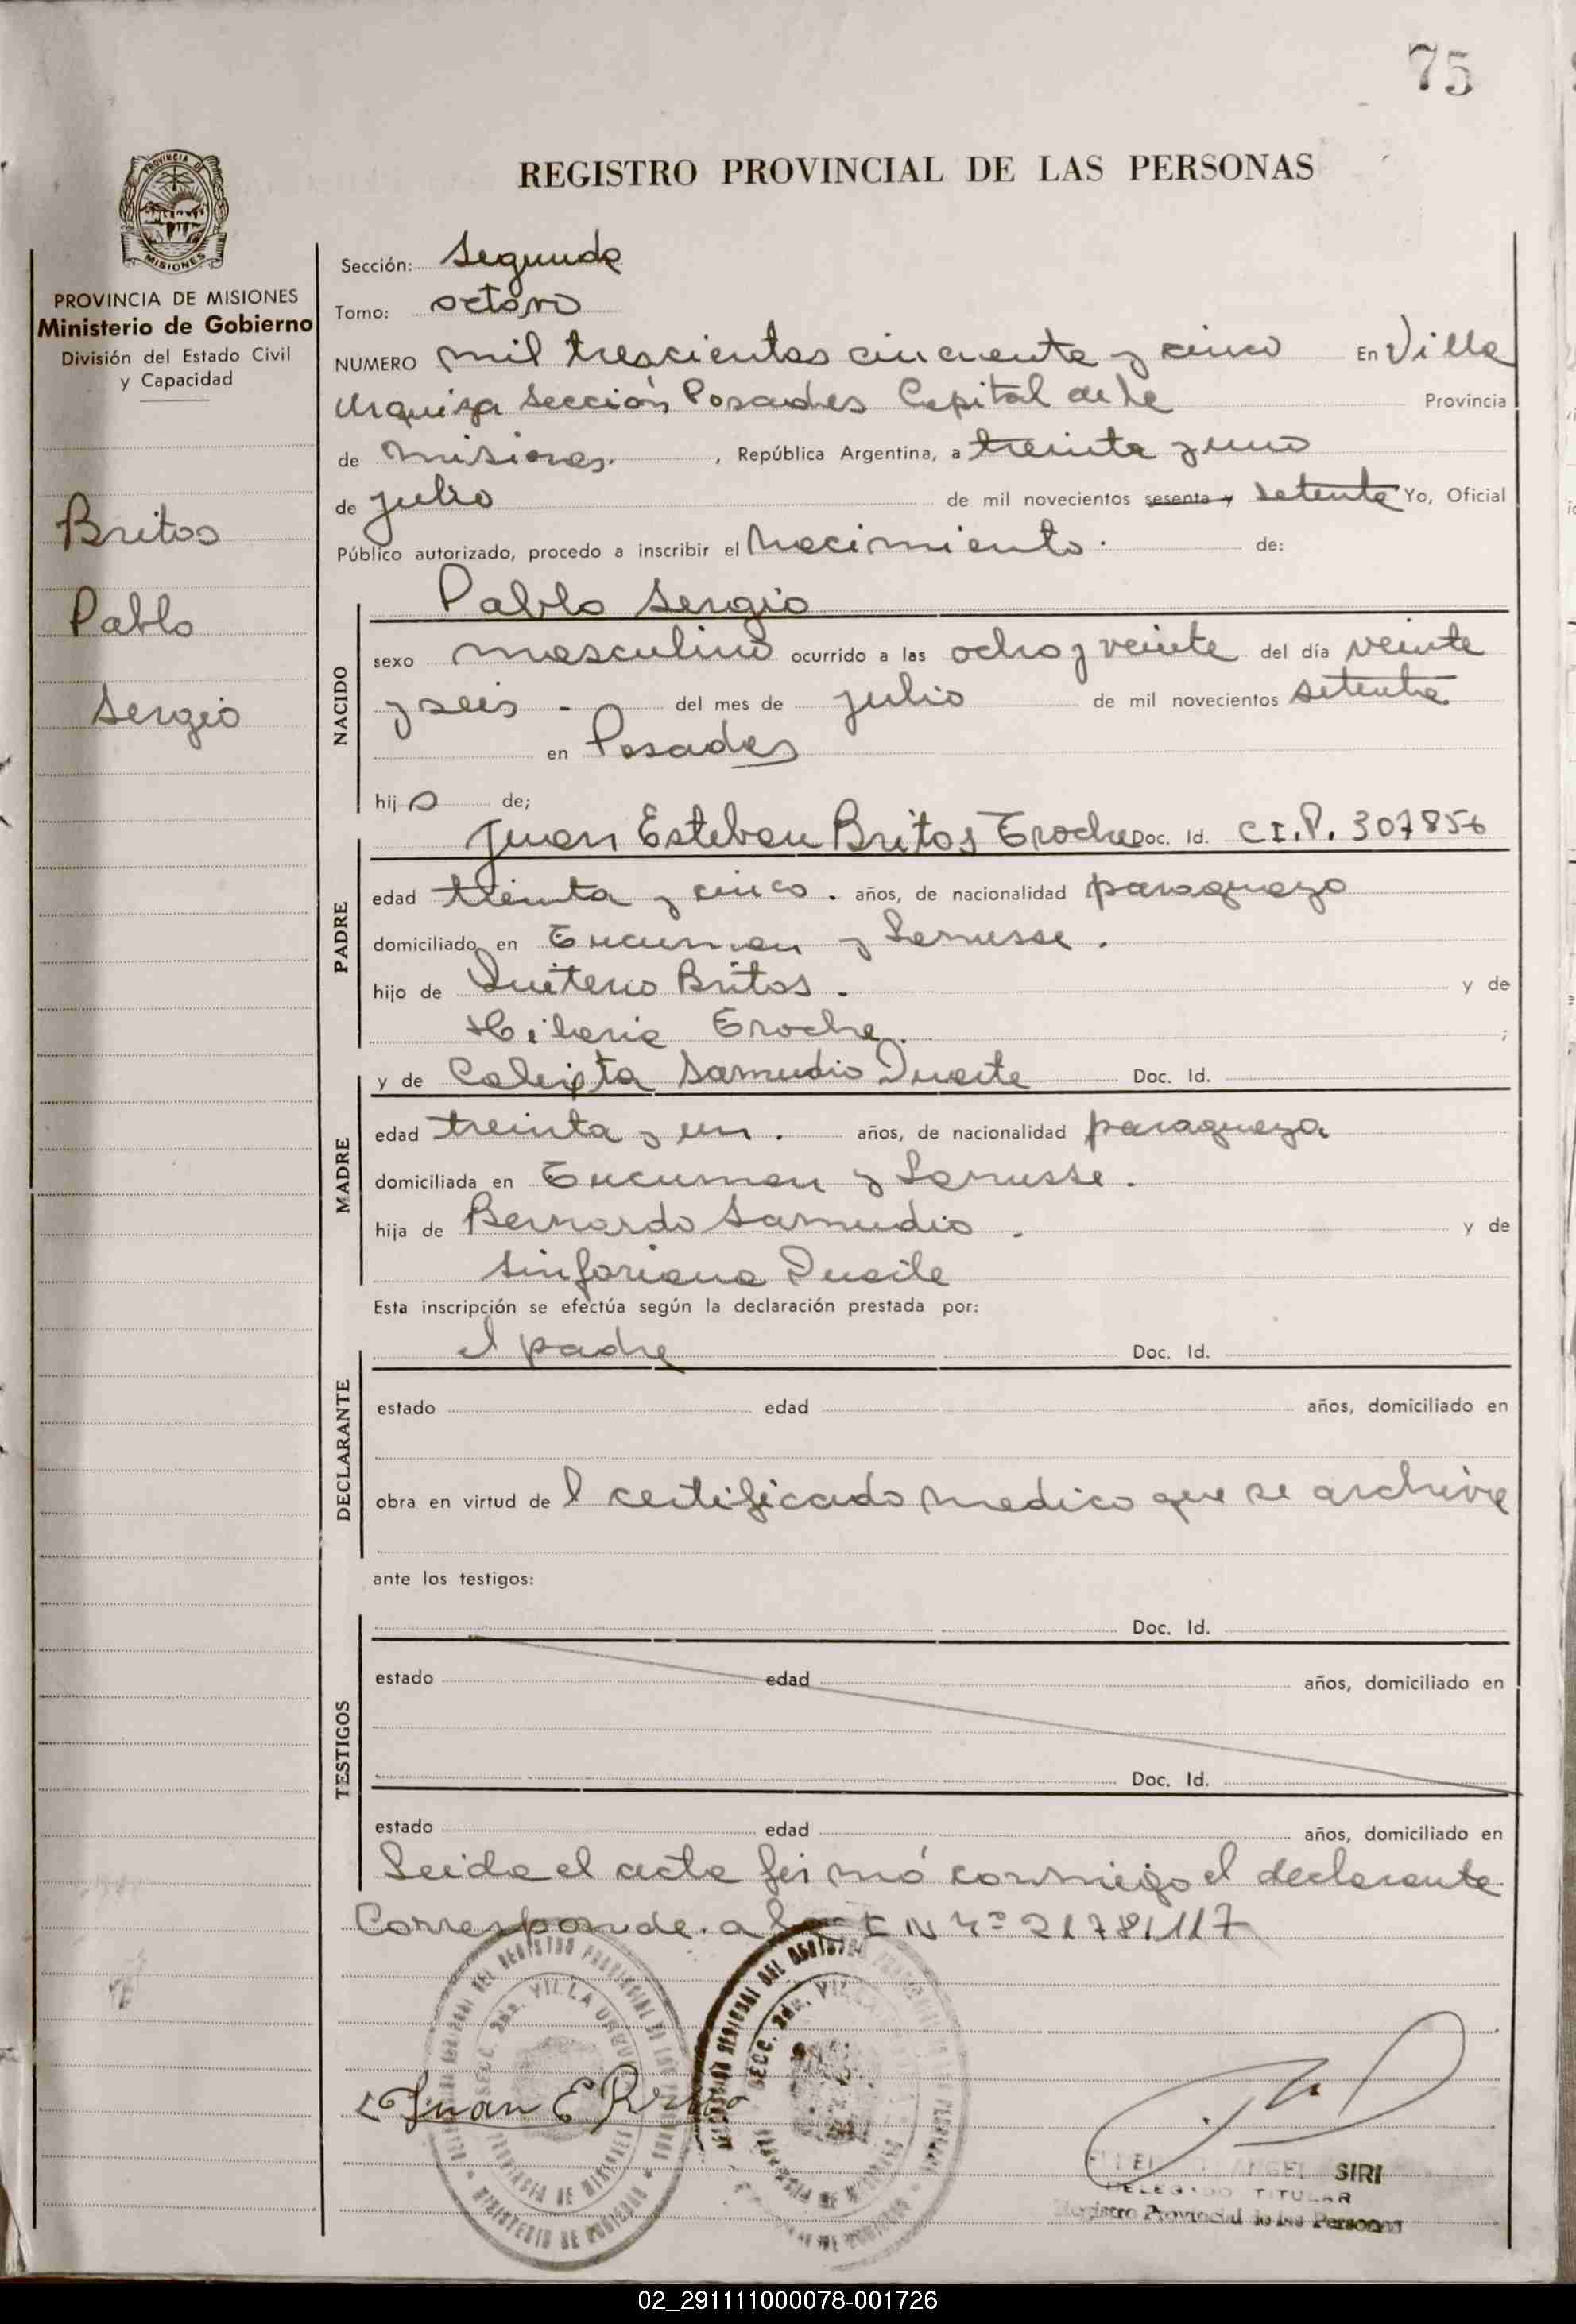 75
PROVINCIA DE
MISIONES
PROVINCIA DE MISIONES
Ministerio de Gobierno
División del Estado Civil
y Capacidad
Britos
Pablo
Sergio
REGISTRO PROVINCIAL DE LAS PERSONAS
Sección: Segunda
Tomo: octavo
NUMERO mil trescientos cincuenta y cinco En Villa
Urquiza Sección Posadas Capital de la Provincia
de Misiones. , República Argentina, a treinta y uno
de julio de mil novecientos sesenta y setenta Yo, Oficial
Público autorizado, procedo a inscribir el Nacimiento. de:
Pablo Sergio
NACIDO
sexo masculino ocurrido a las ocho y veinte del día veinte
y seis - del mes de julio de mil novecientos setenta
en Posadas
hijo de;
PADRE
Juan Esteban Britos Troche Doc. Id. C.I.P. 307856
edad treinta y cinco. años, de nacionalidad paraguayo
domiciliado en Tucuman y Lanusse.
hijo de Quiterio Britos. y de
Hilaria Troche. ;
MADRE
y de Calixta Samudio Duarte Doc. Id.
edad treinta y un. años, de nacionalidad paraguaya
domiciliada en Tucuman y Lanusse.
hija de Bernardo Samudio. y de
Sinforiana Duarte
Esta inscripción se efectúa según la declaración prestada por:
DECLARANTE
el padre Doc. Id.
estado edad años, domiciliado en
obra en virtud de l certificado medico que se archiva
ante los testigos:
TESTIGOS
Doc. Id.
estado edad años, domiciliado en
Doc. Id.
estado edad años, domiciliado en
Leida el acta firmó conmigo el declarante
Corresponde a N° 21781117
SECC. 2da. VILLA URQUIZA
PROVINCIA DE MISIONES
MINISTERIO DE GOBIERNO
SECC. 2da.
Juan E
ANGEL SIRI
DELEGADO TITULAR
Registro Provincial de las Personas
02_291111000078-001726